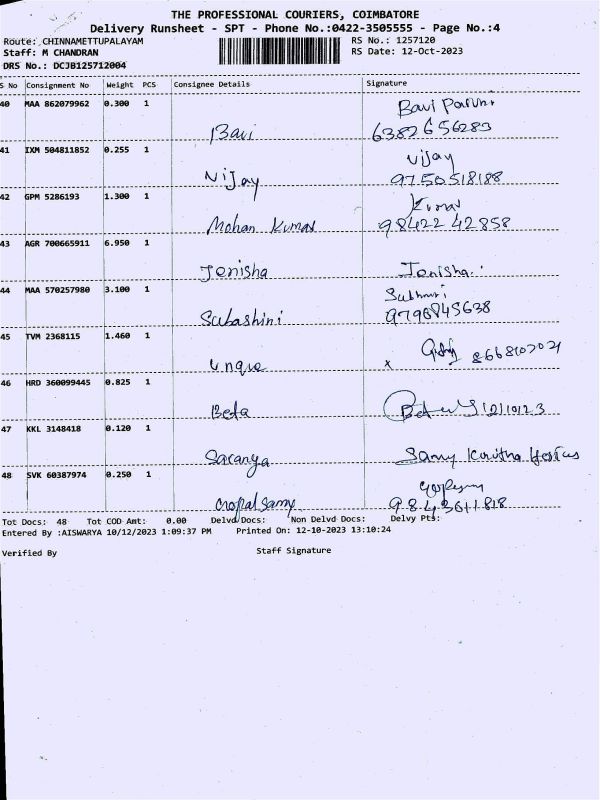 THE PROFESSIONAL COURIERS, COIMBATORE
Delivery Runsheet - SPT - Phone No.:0422-3505555 - Page No.:4
Route: CHINNAMETTUPALAYAM
RS No.: 1257120
Staff: M CHANDRAN
RS Date: 12-Oct-2023
DRS No.: DCJB125712004
S No Consignment No Weight PCS Consignee Details Signature
40 MAA 862079962 0.300 1
Bavi
6382656283
41 IXM 504811852 0.255 1
Vijay
Vijay
9750518188
42 GPM 5286193 1.300 1
Kumar
Mohan Kumar 98422 42858
43 AGR 700665911 6.950 1
Jenisha Jenisha
44 MAA 570257980 3.100 1
Subashini 9790845638
45 TVM 2368115 1.460 1
x
46 HRD 360099445 0.825 1
Beta
47 KKL 3148418 0.120 1
Saranya
48 SVK 60387974 0.250 1
Gopalsamy 9843611818
Tot Docs: 48 Tot COD Amt: 0.00 Delvd Docs: Non Delvd Docs: Delvy Pts:
Entered By :AISWARYA 10/12/2023 1:09:37 PM Printed On: 12-10-2023 13:10:24
Verified By Staff Signature